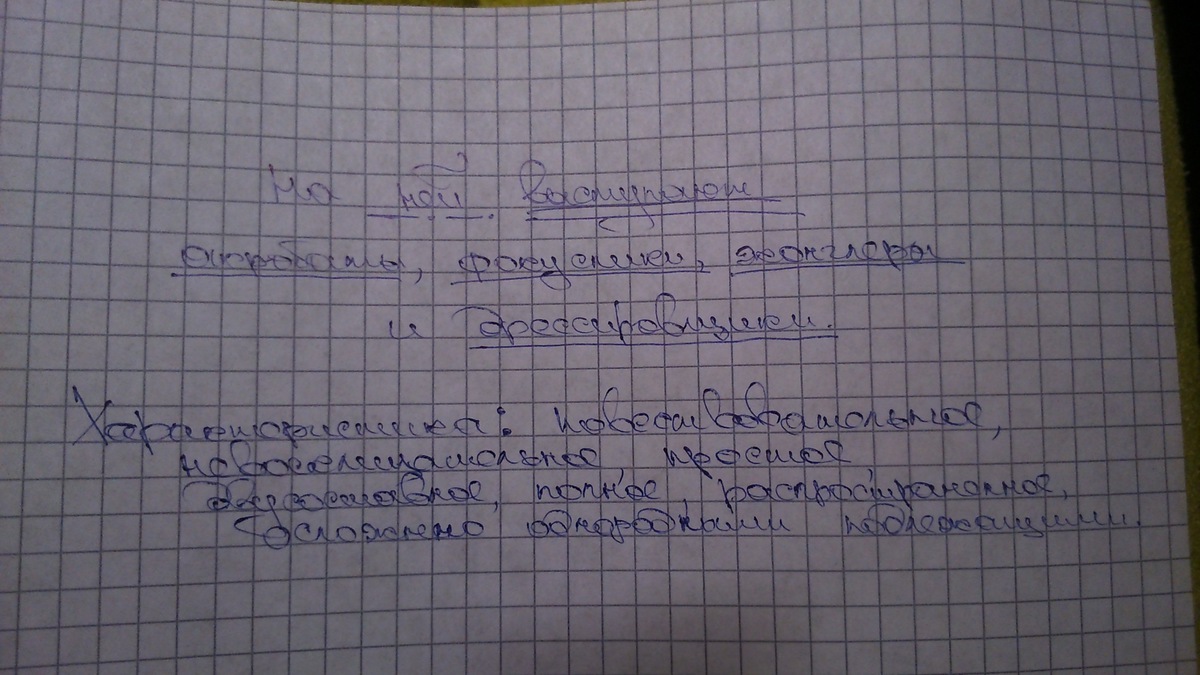 На ней выступают
акробаты, фокусники, жонглеры
и дрессировщики.
Характеристика: повествовательное,
невосклицательное, простое,
двусоставное, полное, распространенное,
осложнено однородными подлежащими.